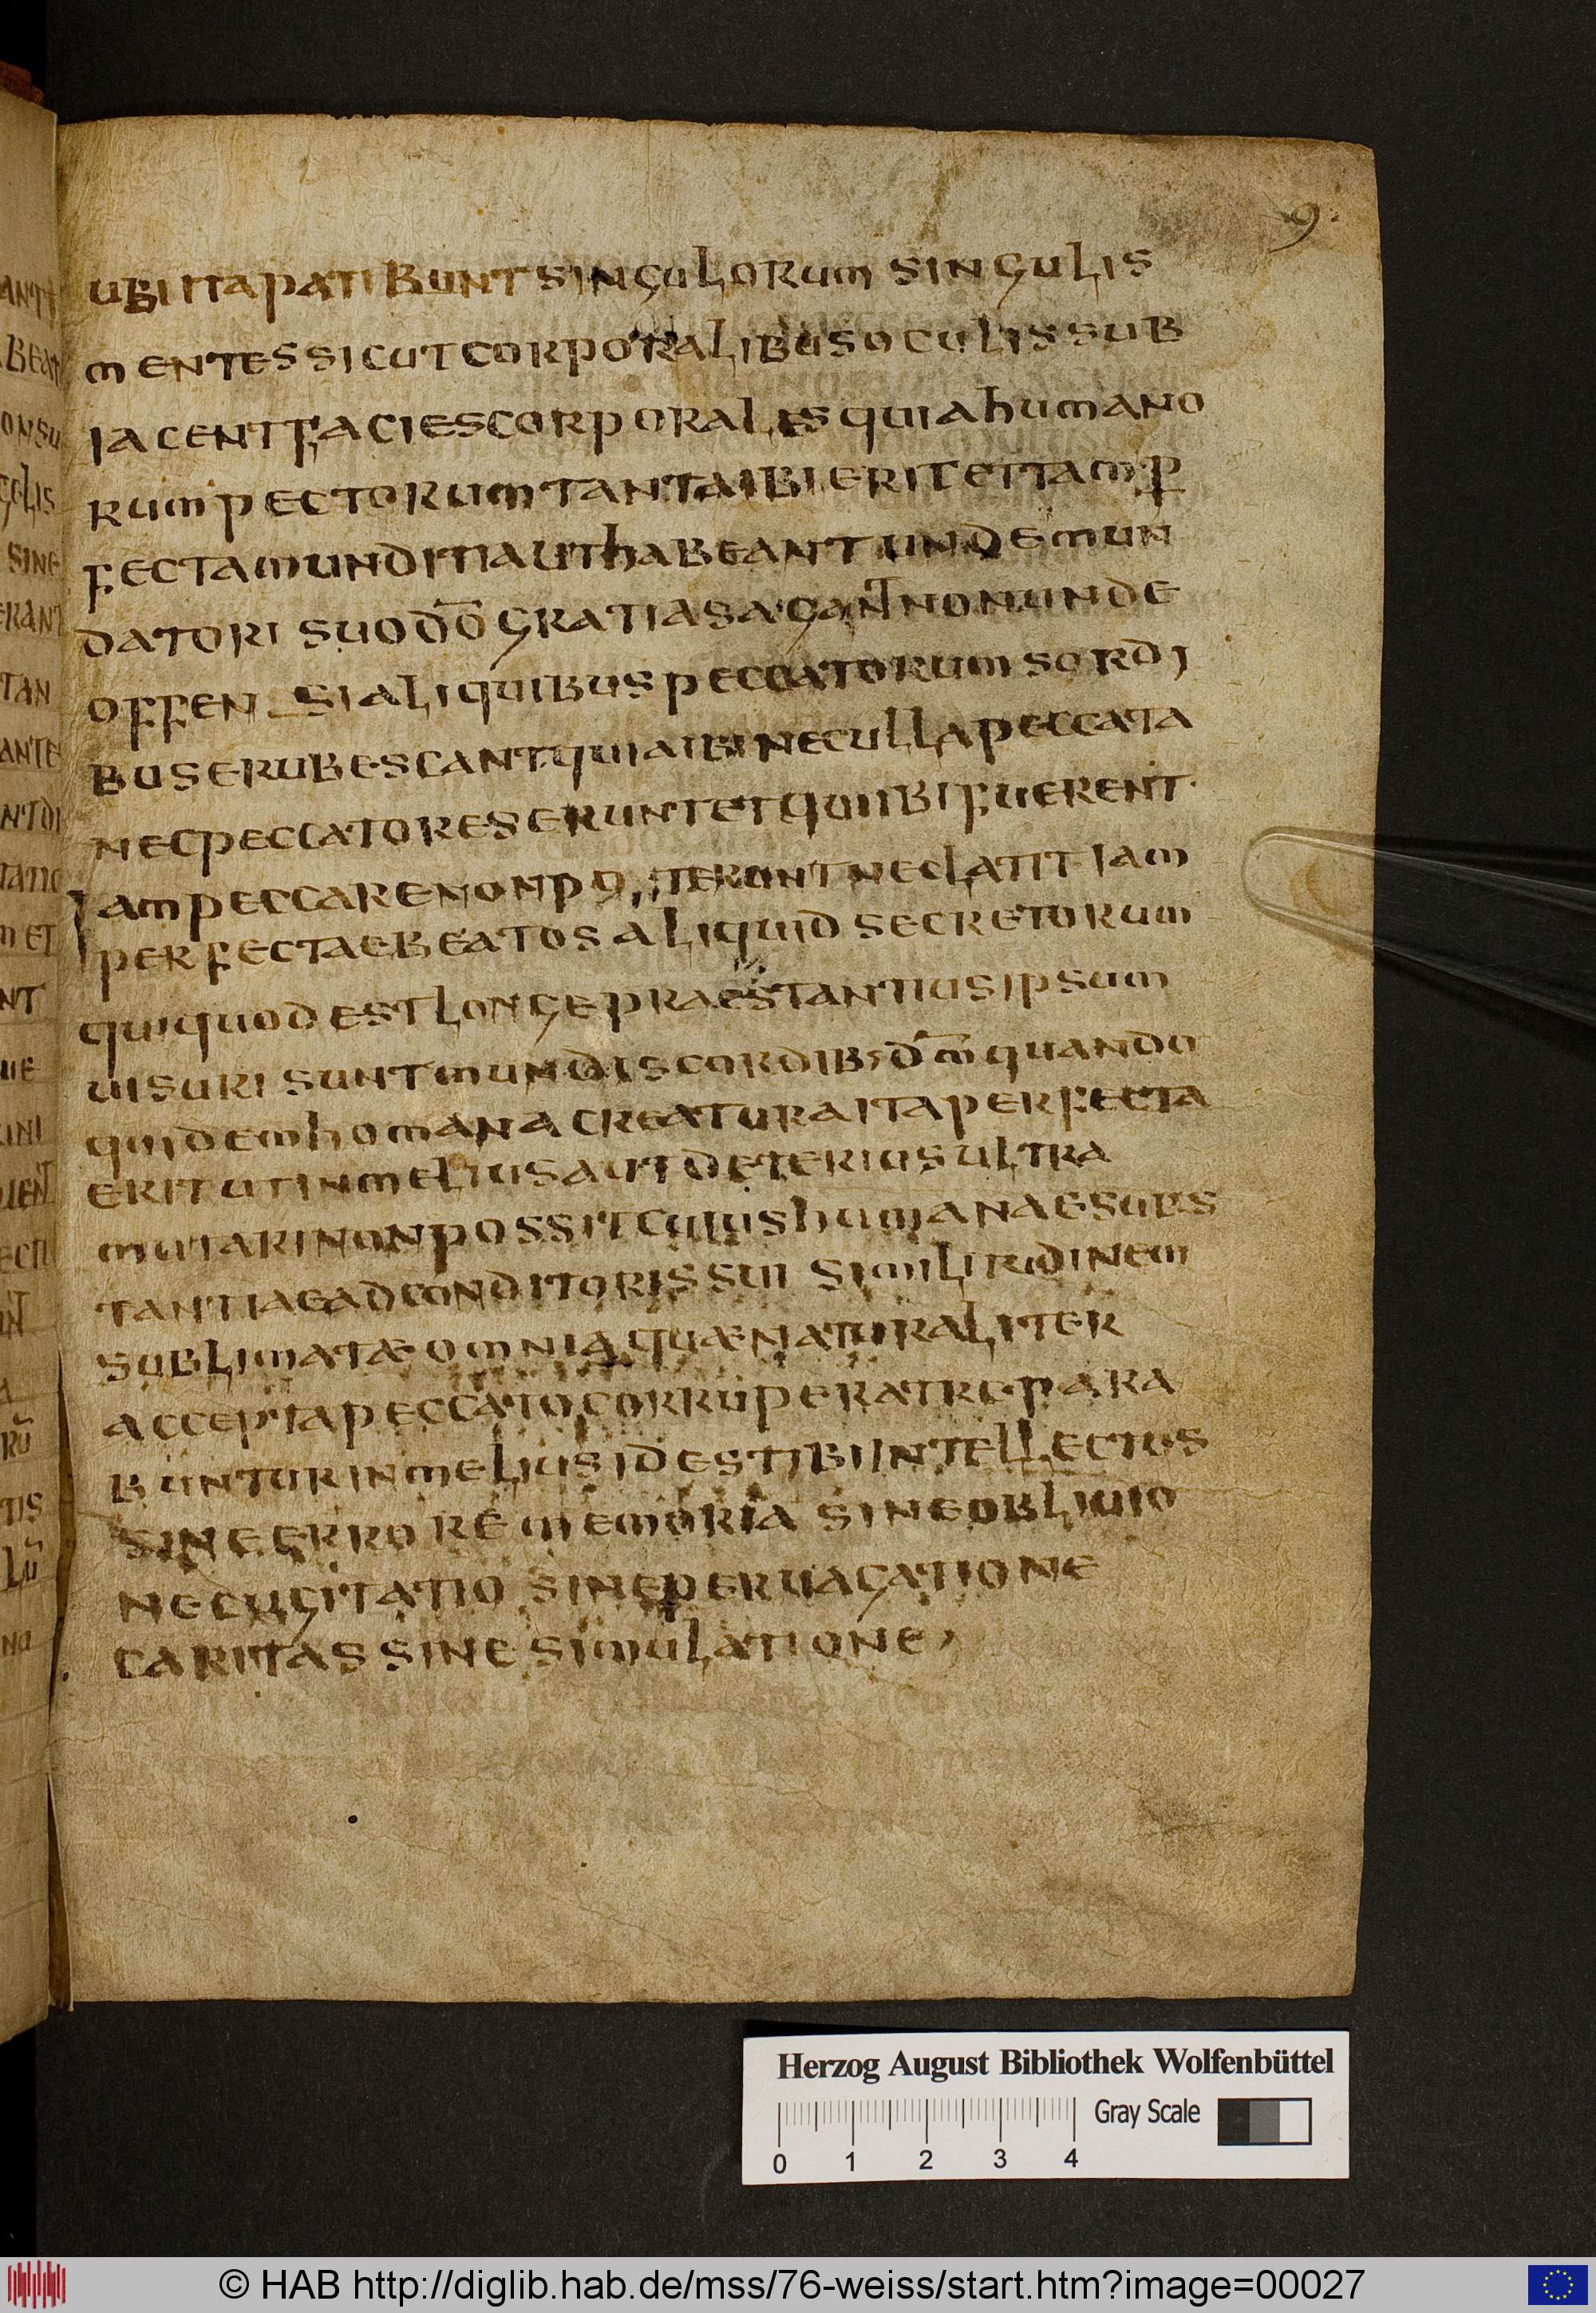 9.
ubi ita patibunt singulorum singulis
mentes sicut corporalibus oculis sub
iacent facies corporales quia humano
rum pectorum tanta ibi erit et tam p
fecta munditia ut habeant unde mun
datori suo dō gratias agant non unde
offensi aliquibus peccatorum sordi
bus erubescant quia ibi nec ulla peccata
nec peccatores erunt et qui ibi fuerent
iam peccare non poterunt nec latit iam
perfectae beatos aliquid secretorum
qui quod est longe praestantius ipsum
uisuri sunt mundis cordib; dm̄ quando
quidem homana creatura ita perfecta
erit ut in melius aut deterius ultra
mutari non possit cuius humanae subs
tantiae ad conditoris sui similitudinem
sublimatæ omnia quæ naturaliter
accepta peccato corruperat repara
buntur in melius id est ibi intellectus
sine errore memoria sine obliuio
ne cugitatio sine peruagatione
caritas sine simulatione
Herzog August Bibliothek Wolfenbüttel
0 1 2 3 4 Gray Scale
© HAB http://diglib.hab.de/mss/76-weiss/start.htm?image=00027